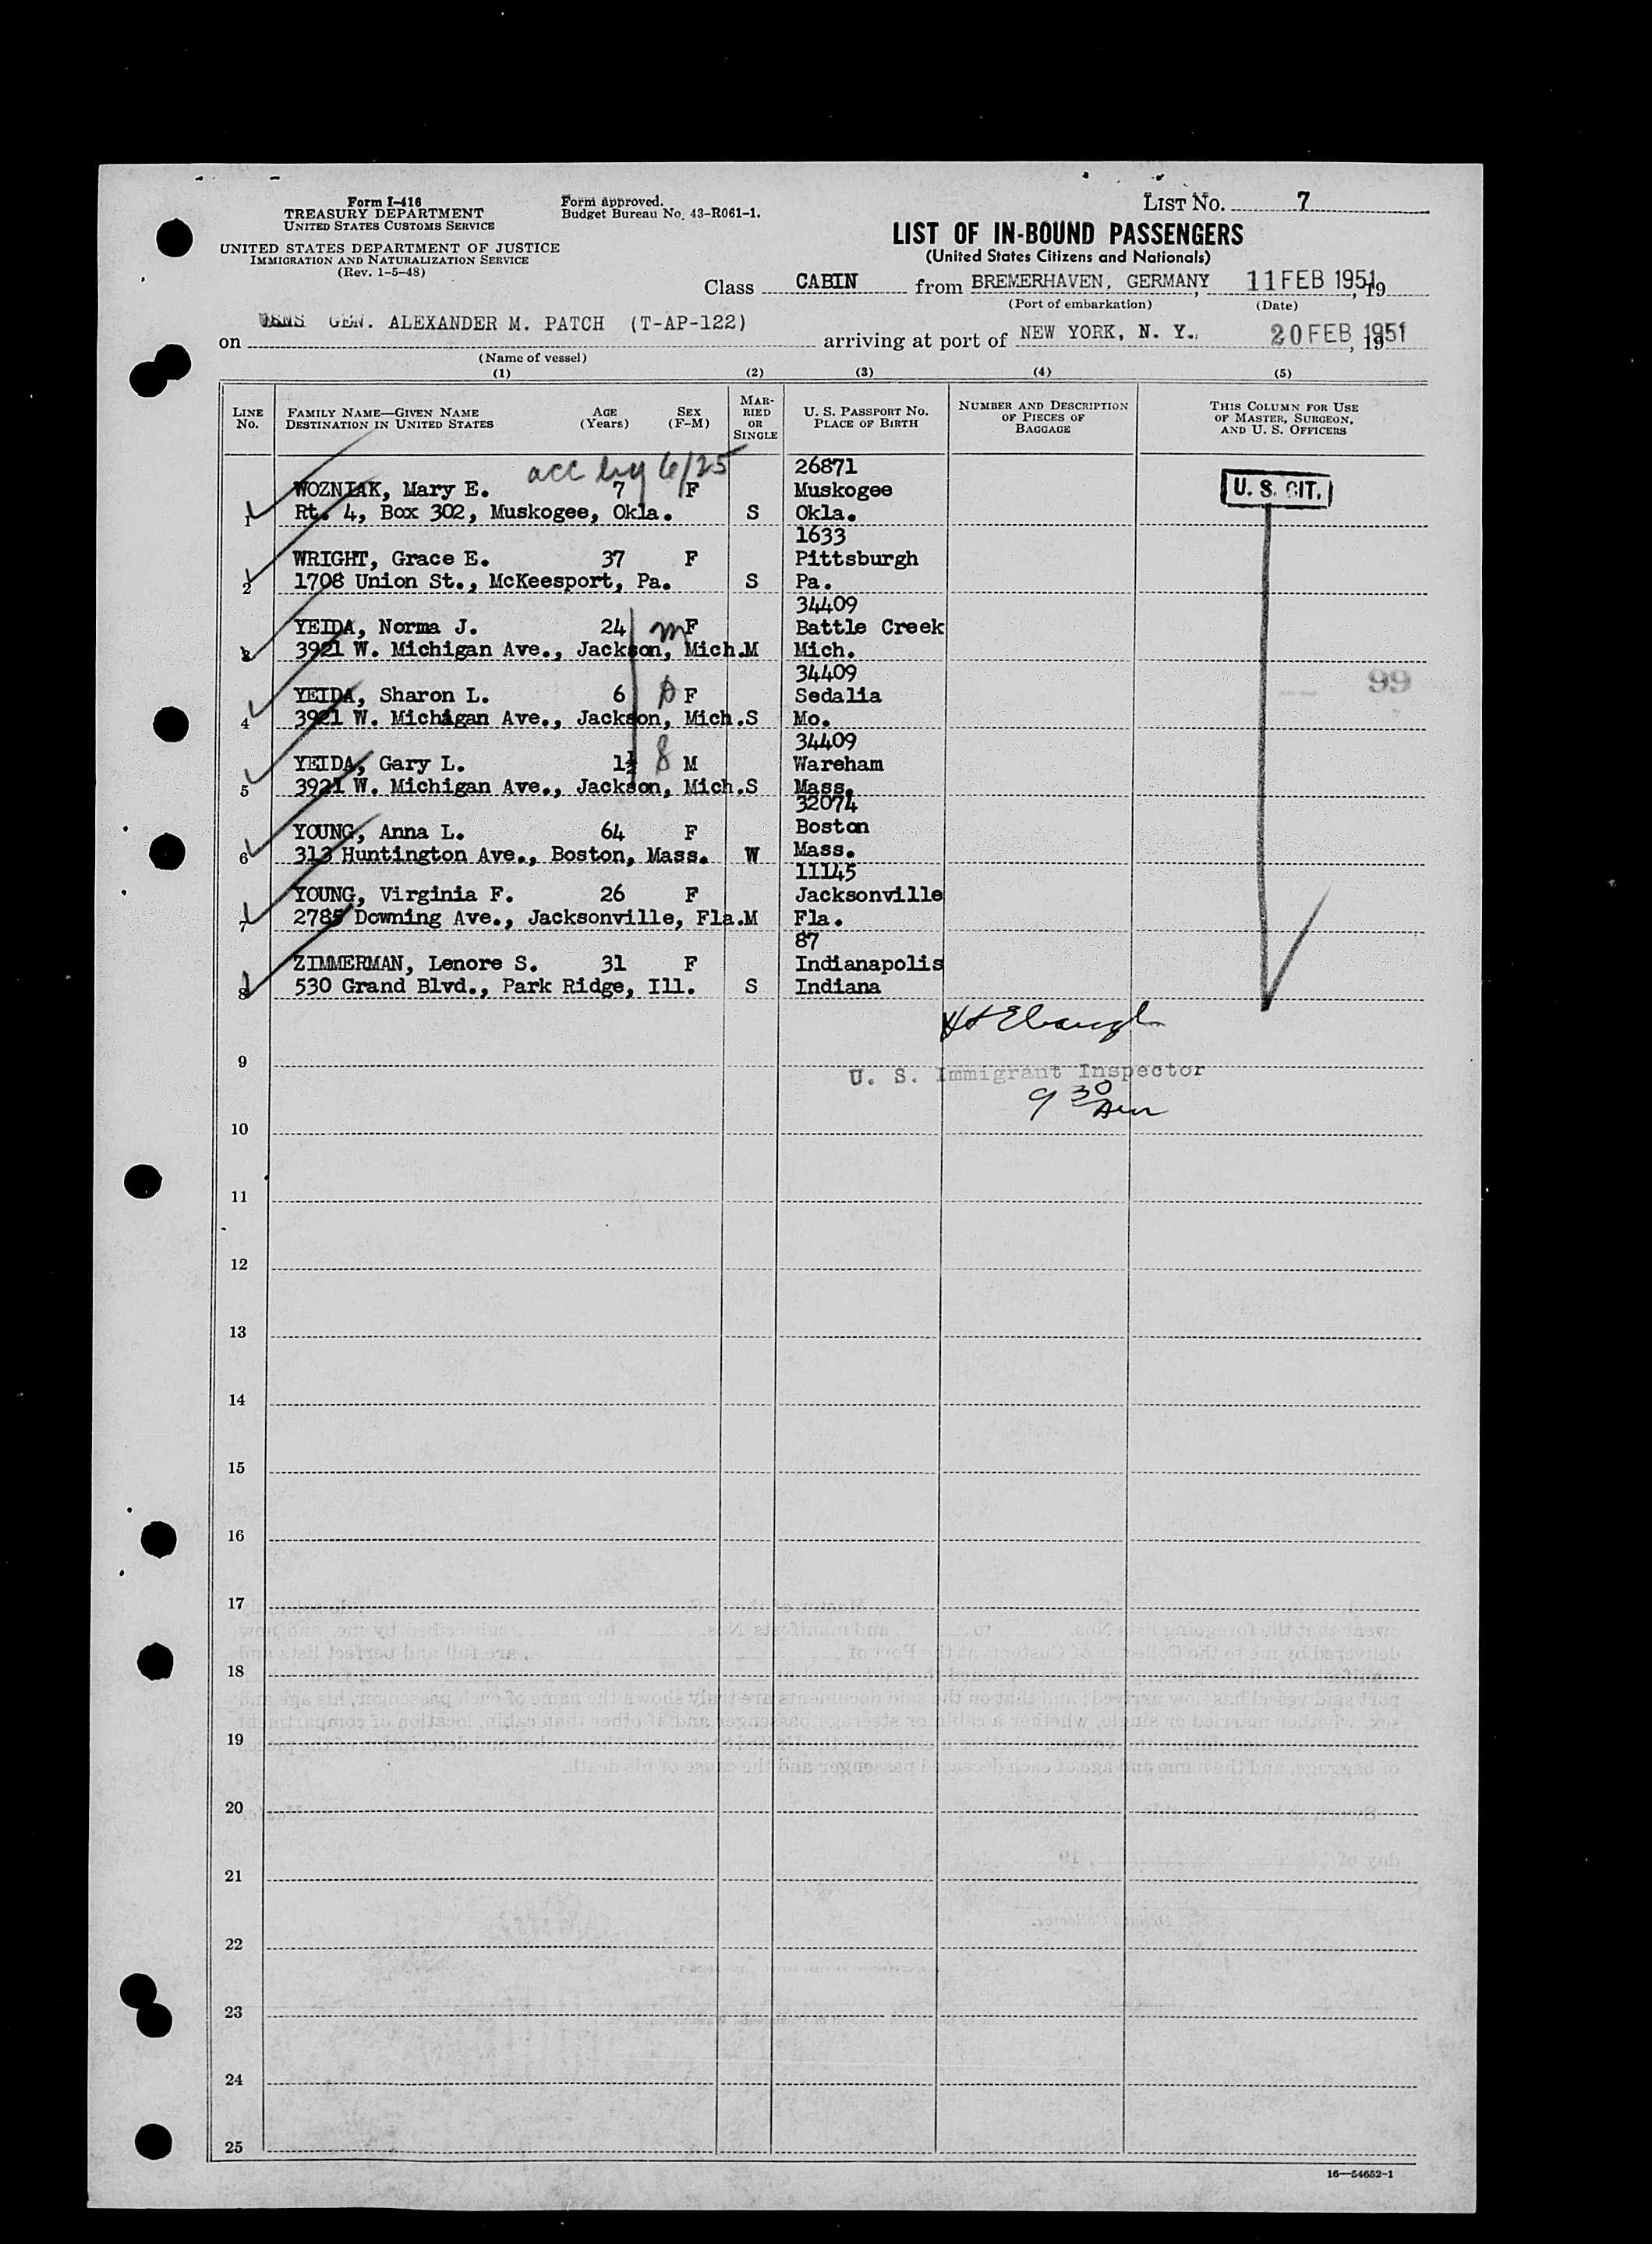 Form I-416
TREASURY DEPARTMENT
UNITED STATES CUSTOMS SERVICE
UNITED STATES DEPARTMENT OF JUSTICE
IMMIGRATION AND NATURALIZATION SERVICE
(Rev. 1-5-48)
Form approved.
Budget Bureau No. 43-R061-1.
LIST No. 7
LIST OF IN-BOUND PASSENGERS
(United States Citizens and Nationals)
Class CABIN from BREMERHAVEN, GERMANY, 11 FEB 1951, 19
(Port of embarkation) (Date)
on GEN. ALEXANDER M. PATCH (T-AP-122) arriving at port of NEW YORK, N. Y., 20 FEB 1951, 19
(Name of vessel)
(1) (2) (3) (4) (5)
LINE No.
FAMILY NAME—GIVEN NAME
DESTINATION IN UNITED STATES
AGE (Years)
SEX (F-M)
MARRIED OR SINGLE
U. S. PASSPORT No.
PLACE OF BIRTH
NUMBER AND DESCRIPTION OF PIECES OF BAGGAGE
THIS COLUMN FOR USE OF MASTER, SURGEON, AND U. S. OFFICERS
acc by 6/25
26871
WOZNIAK, Mary E. 7 F Muskogee
1 Rt. 4, Box 302, Muskogee, Okla. S Okla.
U. S. CIT.
1633
WRIGHT, Grace E. 37 F Pittsburgh
2 1708 Union St., McKeesport, Pa. S Pa.
34409
YEIDA, Norma J. 24 m F Battle Creek
3 3921 W. Michigan Ave., Jackson, Mich. M Mich.
34409
99
YEIDA, Sharon L. 6 F Sedalia
4 3921 W. Michigan Ave., Jackson, Mich. S Mo.
34409
YEIDA, Gary L. 1½ 8 M Wareham
5 3921 W. Michigan Ave., Jackson, Mich. S Mass.
32074
YOUNG, Anna L. 64 F Boston
6 313 Huntington Ave., Boston, Mass. W Mass.
11145
YOUNG, Virginia F. 26 F Jacksonville
7 2785 Downing Ave., Jacksonville, Fla. M Fla.
87
ZIMMERMAN, Lenore S. 31 F Indianapolis
8 530 Grand Blvd., Park Ridge, Ill. S Indiana
9
U. S. Immigrant Inspector
9 30 Am
10
11
12
13
14
15
16
17
18
19
20
21
22
23
24
25
16—54652-1